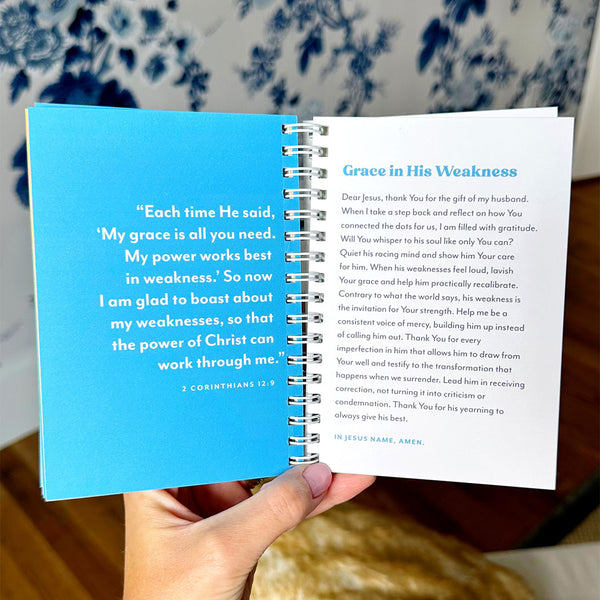 “Each time He said,
‘My grace is all you need.
My power works best
in weakness.’ So now
I am glad to boast about
my weaknesses, so that
the power of Christ can
work through me.”
2 CORINTHIANS 12:9
Grace in His Weakness
Dear Jesus, thank You for the gift of my husband.
When I take a step back and reflect on how You
connected the dots for us, I am filled with gratitude.
Will You whisper to his soul like only You can?
Quiet his racing mind and show him Your care
for him. When his weaknesses feel loud, lavish
Your grace and help him practically recalibrate.
Contrary to what the world says, his weakness is
the invitation for Your strength. Help me be a
consistent voice of mercy, building him up instead
of calling him out. Thank You for every
imperfection in him that allows him to draw from
Your well and testify to the transformation that
happens when we surrender. Lead him in receiving
correction, not turning it into criticism or
condemnation. Thank You for his yearning to
always give his best.
IN JESUS NAME, AMEN.